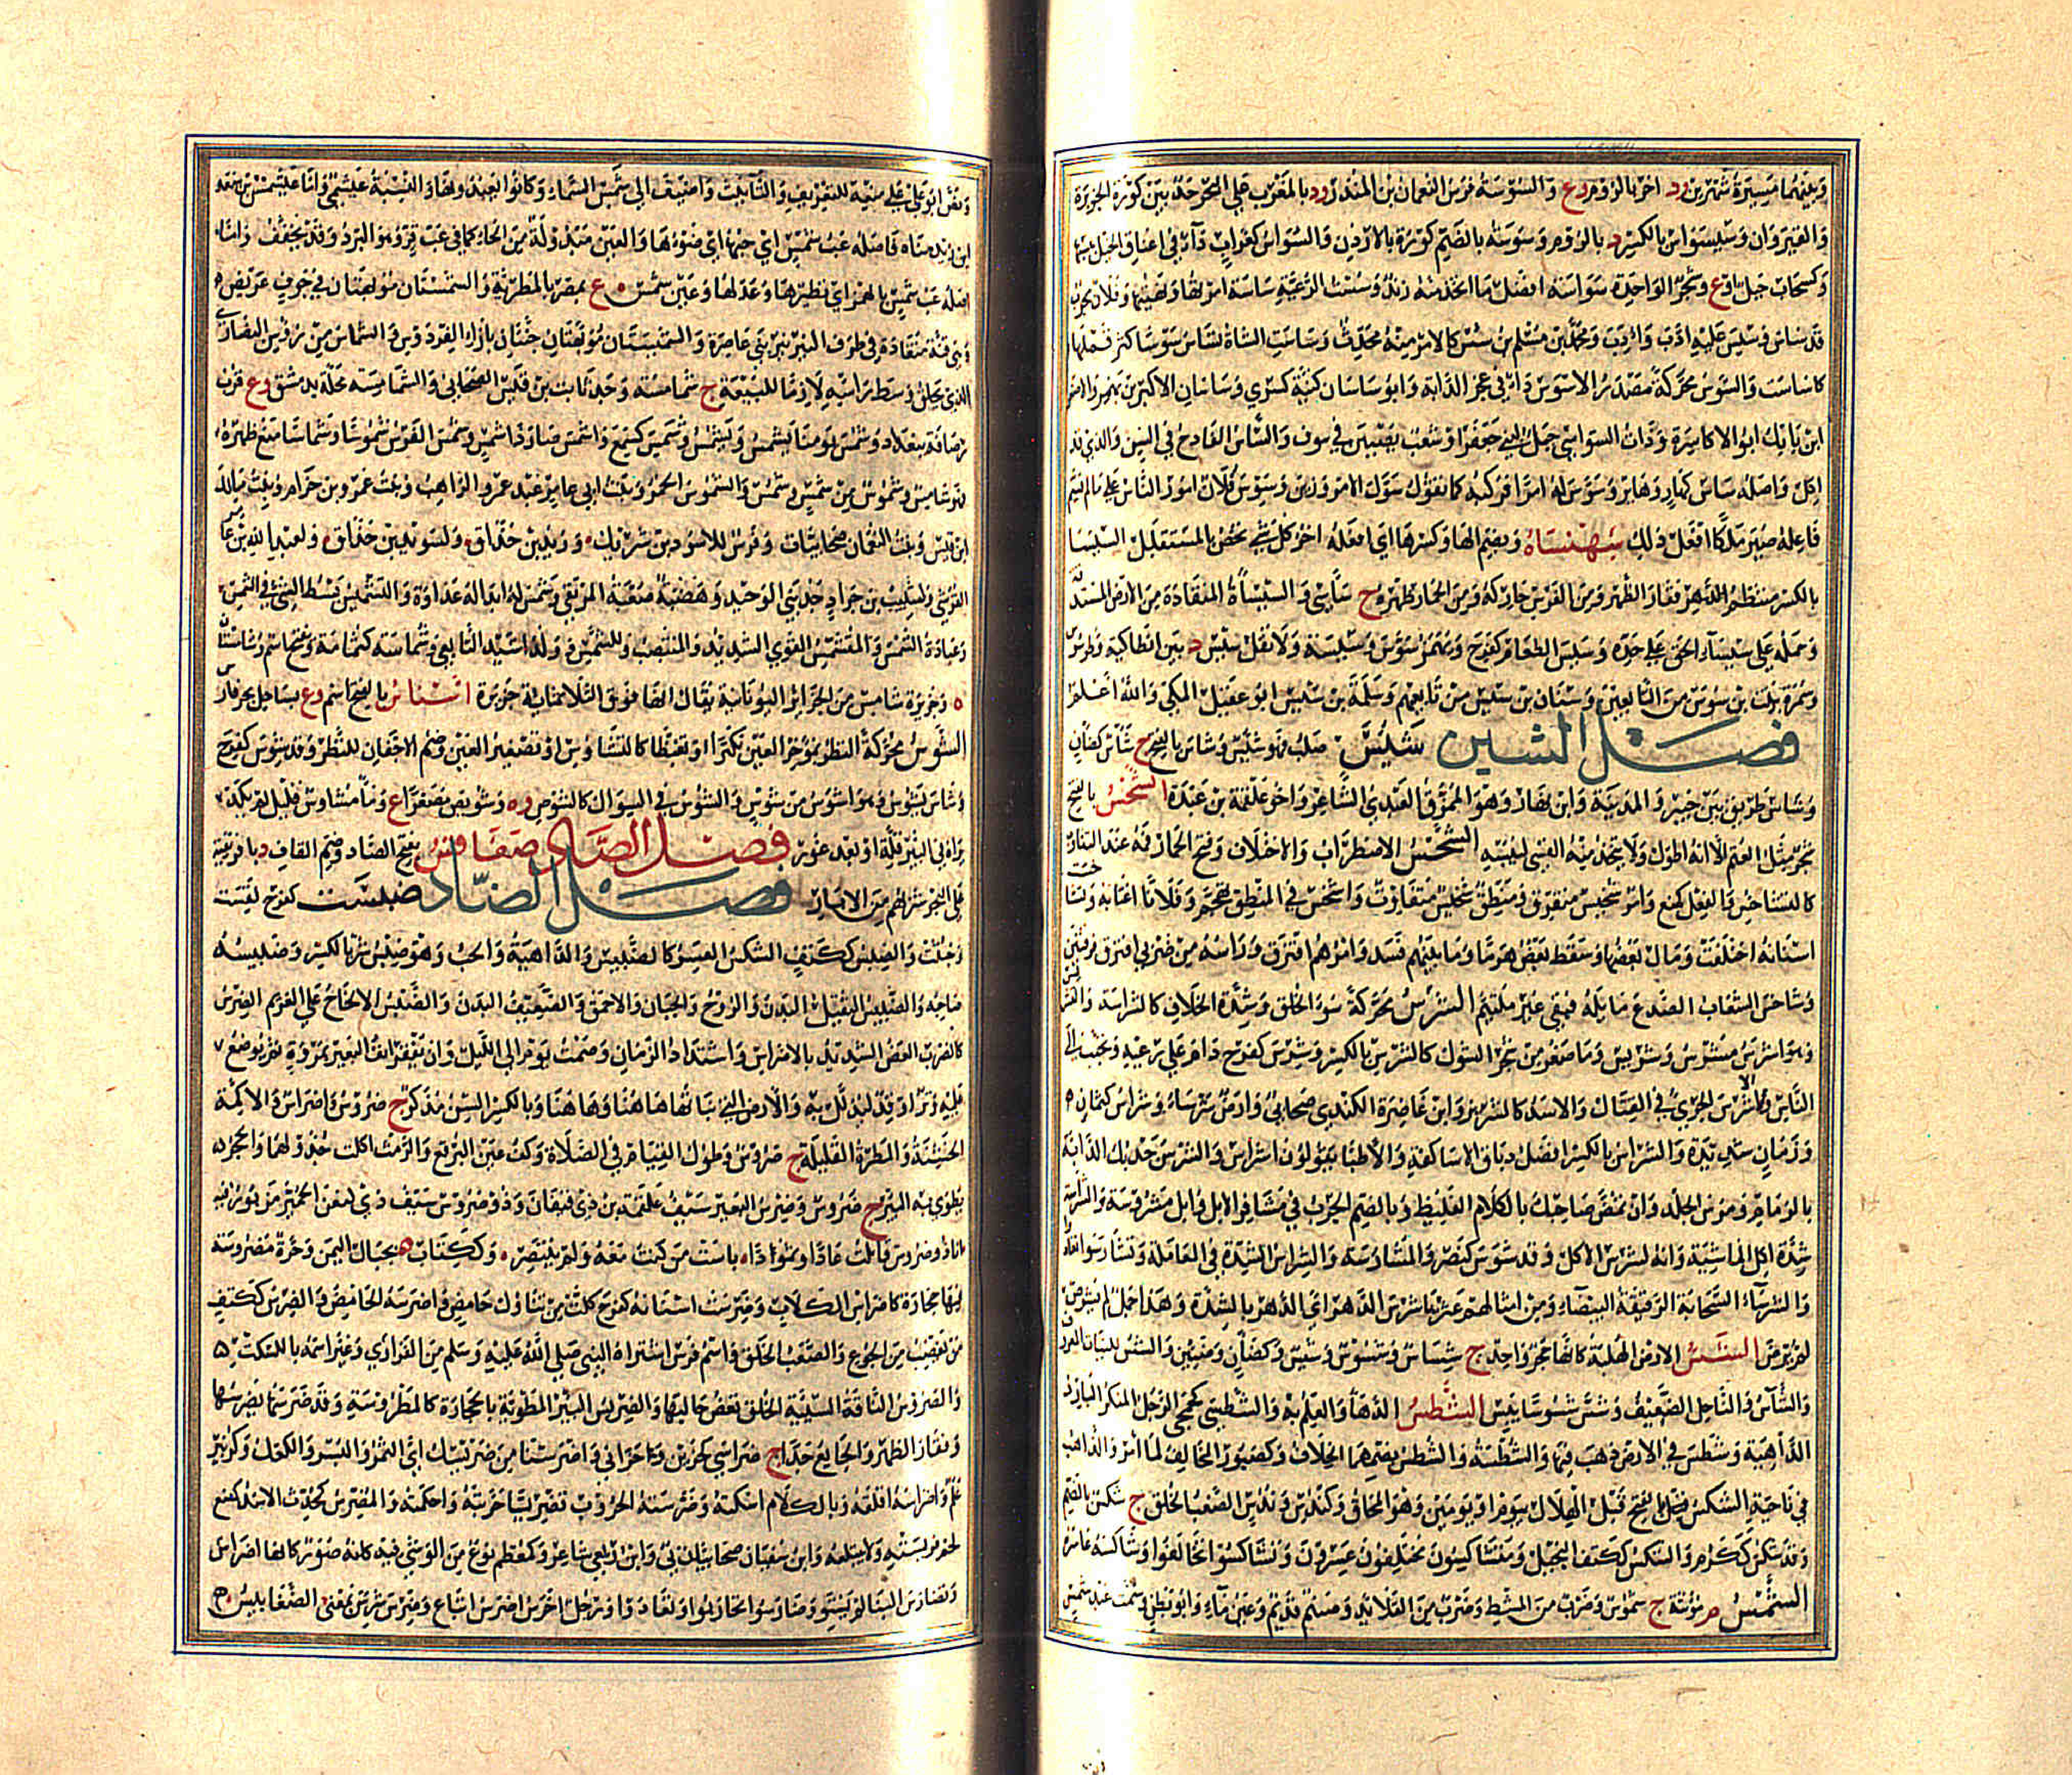 وبينهما مسيرة شهرين ود اخر بالروم وع والسوسة فرس النعمان بن المنذر ود بالمغرب على البحر حد بين كورة الجزيرة
والقيروان بالكسر د بالروم وسوسة بالضم كورة بالاردن والسواس كغراب داء في اعناق الخيل
وكسحاب جبل اوع وشجر الواحدة سواسة افضل ما اتخذ منه زند وسست الرعية سياسة امرتها ونهيتها وفلان مجرب
قد ساس وسيس عليه ادب وادب ومحمد بن مسلم بن سس كالامر منه محدث وساست الشاة تساس سوسا كثر قملها
كاساست والسوس محركة مصدر الاسوس داء في عجز الدابة وابو ساسان كنية كسرى وساسان الاكبر بن بهمن
ابن بابك ابو الاكاسرة وذات السواسي جبل لبني جعفر او شعب يصببن في سوف والساس القادح في السن والذي قد
اكل واصله سائس كهار وهاير وسوس له امرا فركبه كما تقول سول الامر وزين وسوس فلان امور الناس على ما لم يسم
فاعله صير ملكا افعل ذلك سهنساه وبضم الها وكسرها اي افعله اخر كل شئ يخص بالمستقبل السيسا
بالكسر منتظم فقار الظهر ومن الفرس حاركه ومن الحمار ظهره ج سياسي والسيساة المنقادة من الارض المستدقة
وحمله على سيساء الحق على حده وسيس الطعام كفرح وسيسة ولا تقل سيس د بين انطاكية وطرسوس
وسمرة بن سيس من التابعين وسنان بن سيس من تابعيهم وسلمة بن سيس ابو عقيل المكي والله اعلم
فصل الشين شئس صلب فهو شئس وشاس بالفتح ج شئاس كضان
وشاس طريق بين خيبر والمدينة وابن نهار وهو الممزق العبدي الشاعر واخو علقمة بن عبدة الشخس بالفتح
شجر مثل العتم الا انه اطول ولا يتخذ منه القسي ليبسه الشخس الاضطراب والاختلاف وفتح الحمار فمه عند التثاوب
كالتشاخس والفعل كمنع وامر شخيس متفرق ومنطق شخيس متفاوت واشخس في المنطق تجهم وفلانا اغتابه وتشاخست
اسنانه اختلفت ومال بعضها وسقط بعض هرما وما بينهم فسد وامرهم افترق وراسه من ضربي افترق فرقتين
وشاخس الشعاب الصدع مايله فبقي غير ملتئم الشرس محركة سوء الخلق وشدة الخلاف كالشراسة
وهو اشرس وشرس وشريس وما صغر من شجر الشوك كالشرس بالكسر وشرس كفرح دام على رعيه وتحبب الى
الناس والاشرس الجريء في القتال والاسد كالشريس وابن غاضرة الكندي صحابي وارض شرساء وشراس كثمان
وزمان شديدة والشراس بالكسر افضل دباق الاساكفة والاطبا يقولون اشراس والشرس جذبك الدابة
بالزمام ومرس الجلد وان تمض صاحبك بالكلام الغليظ وبالضم الجرب في مشافر الابل وابل مشروسة والشراسة
شدة اكل الماشية وانه لشرس الاكل وقد شرس كنصر والمشارسة والشراس الشدة في المعاملة وتشارسوا تعادوا
والشرساء السحابة الرقيقة البيضاء ومن امثالهم عثر باشرس الدهر اي الدهر بالشدة وهذا جمل لم يشرس
لم يرض الشس الارض الصلبة كانها حجر واحد ج شساس وشسوس وشسس وكضان ومئين والشس للنبات المعروف
والشاس والناحل الضعيف وشس شسوسا يبس الشطس الدهاء والعلم به والشطسي كجمحي الرجل المنكر المارد
الداهية وشطس في الارض ذهب فيها والشطسة والشطس بضمهما الخلاف وكصبور المخالف لما امر والذاهب
في ناحية الشكس بالفتح قبل الهلال بيوم او يومين وهو المحاق وكندس وندس الصعب الخلق ج شكس بالضم
وقد شكس ككرم والشكس ككتف البخيل ومتشاكسون مختلفون عسرون وتشاكسوا تخالفوا وشاكسه عاسره
الشمس م مؤنثة ج شموس وضرب من المشط وضرب من القلائد وصنم قديم وعين ماء وابو بطن وسمت عبد شمس
ونص ابو علي على منعه للتعريف والتأنيث واضيف الى شمس السماء وكانوا يعبدونها والنسبة عبشمي واما عبشمس بن سعد
ابن زيد مناة فاصله عب شمس اي حبها اي ضوءها والعين مبدلة من الحاء كما في عب قر وهو البرد وقد تخفف واما
اصله عبء شمس بالهمز اي نظيرها وعدلها وعين شمس ع بمصر بالمطرية والشمستان مويهتان في جوف عريض
وهي قنة منقادة في طرف النير نير بني غاضرة والشميستان جنتان بازاء الفردوس والشماس من رؤس النصارى
الذي يحلق وسط راسه لازما للبيعة ج شمامسة وجد ثابت بن قيس الصحابي والشماسية محلة بدمشق وع قرب
رصافة بغداد وشمس يومنا يشمس ويشمس وشمس كسمع واشمس صار ذا شمس وشمس الفرس شموسا وشماسا منع ظهره
فهو شامس وشموس من شمس وشمس والشموس الخمر وبنت ابي عامر عبد عمرو الراهب وبنت عمرو بن حرام وبنت مالك
ابن قيس وبنت النعمان صحابيات وفرس للاسود بن شريك وليزيد بن خذاق ولسويد بن خذاق ولعبد الله بن عامر
القرشي ولشبيب بن جراد احد بني الوحيد وهضبة صعبة المرتقى وشمس له ابدا له عداوة والتشميس بسط الشئ في الشمس
وعبادة الشمس والمتشمس القوي الشديد والمنتصب للشمس ووالد اسيد التابعي وشماسة كثمامة ويفتح اسم وشامستان
ه وجزيرة شامس من الجزائر اليونانية يقال انها فوق الثلاثمائة جزيرة اشناس بالفتح اسم وع بساحل بحر فارس
الشوس محركة النظر بمؤخر العين تكبرا او تغيظا كالتشاوس او تصغير العين وضم الاجفان للنظر وقد شوس كفرح
وشاس يشوس وهو اشوس من شوس والشوس في السواك كالشوص وه وشويس مصغرا ع وماء مشاوس قليل لم تكد
تراه في البئر قلة او بعد غور فصل الصاد صفاقس بفتح الصاد وضم القاف د بافريقية
على البحر شربهم من الابار فصل الضاد ضبست كفرح لقست
وخبثت والضبس ككتف الشكس العسر كالضبيس والداهية والخب وهو ضبس شر بالكسر وضبيسه
صاحبه والضبيس الثقيل البدن والروح والجبان والاحمق والضعيف البدن والضبس الالحاح على الغريم الضرس
كالضرب العض الشديد بالاضراس واشتداد الزمان وصمت يوم الى الليل وان يفقر انف البعير بمروة ثم يوضع
عليه وتر او قد ليذلل به والارض التي نباتها ههنا وههنا وبالكسر السن مذكر ج ضروس واضراس والاكمة
الخشنة والمطرة القليلة ج ضروس وطول القيام في الصلاة وكف عين البرقع والرمث اكلت جذوله والحجر
يطوى به البئر ج ضروس وضرس البعير سيف علقمة بن ذي قيفان وذو ضروس سيف ذي كنعان الحميري مزبور فيه
انا ذو ضروس قاتلت عادا وثمودا باست من كنت معه ولم ينتصر وككتاب ه بجبال اليمن وحرة مضروسة
فيها حجارة كاضراس الكلاب وضرست اسنانه كفرح كلت من تناول حامض واضرسه الحامض والضرس ككتف
من يغضب من الجوع والصعب الخلق واسم فرس اشتراه النبي صلى الله عليه وسلم من الفزاري وغير اسمه بالسكب
والضروس الناقة السيئة الخلق تعض حالبها والضريس البئر المطوية بالحجارة كالمضروسة وقد ضرستها يضرسها
وفقار الظهر والجائع جدا ج ضراسى كحزين وحزانى واضرسنا من ضريسك اي التمر والبسر والكعك وكزبير
علم واضرسه اقلقه وبالكلام اسكته وضرسته الحروب تضريسا جربته واحكمته والمضرس كمحدث الاسد يمضغ
لحم فريسته ولا يبتلعه وابن سفيان صحابيان وابن ربعي شاعر وكمعظم نوع من الوشي فيه كانه صور كانها اضراس
وتضارس البنا لم يستو وضارسوا تحاربوا وتعادوا ورجل اخرس اضرس اتباع وضرس شرس بمعنى الضغابيس